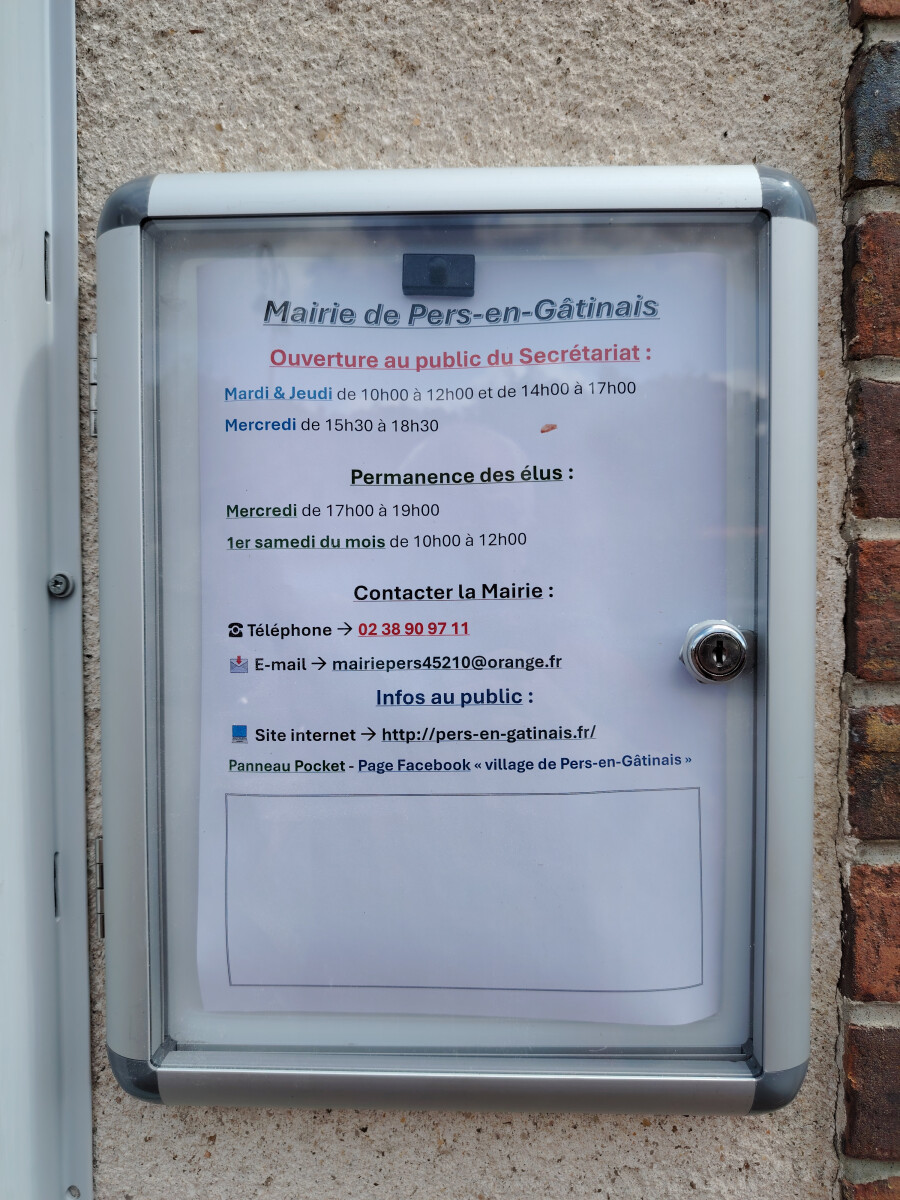 Mairie de Pers-en-Gâtinais
Ouverture au public du Secrétariat :
Mardi & Jeudi de 10h00 à 12h00 et de 14h00 à 17h00
Mercredi de 15h30 à 18h30
Permanence des élus :
Mercredi de 17h00 à 19h00
1er samedi du mois de 10h00 à 12h00
Contacter la Mairie :
☎ Téléphone → 02 38 90 97 11
📩 E-mail → mairiepers45210@orange.fr
Infos au public :
💻 Site internet → http://pers-en-gatinais.fr/
Panneau Pocket - Page Facebook « village de Pers-en-Gâtinais »